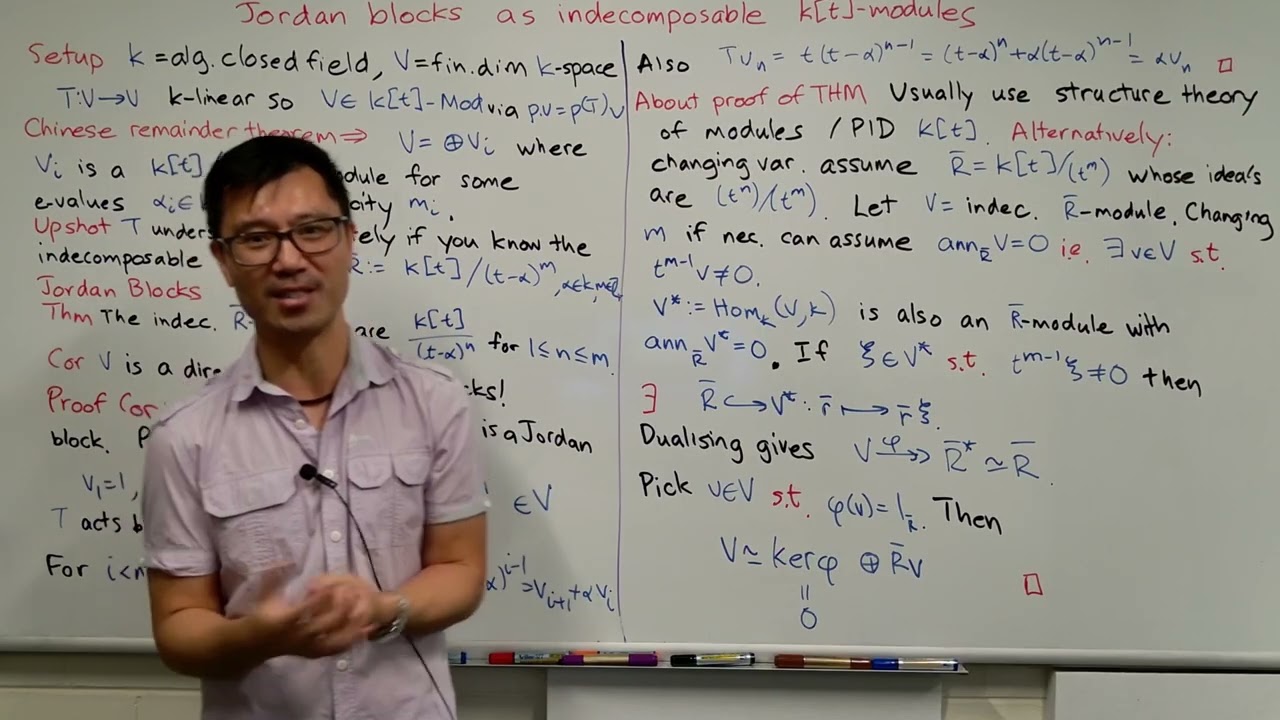 Jordan blocks as indecomposable k[t]-modules
Setup k = alg. closed field, V = fin. dim k-space
T: V → V k-linear so V ∈ k[t]-Mod via p.v = p(T)v
Chinese remainder theorem ⇒ V = ⊕Vi where
Vi is a k[t]/ dule for some
e-values αi ∈ city mi.
Upshot T unders ely if you know the
indecomposable R̄ := k[t]/(t-α)^m, α∈k,
Jordan Blocks
Thm The indec. R̄- are k[t]/(t-α)^n for 1≤n≤m.
Cor V is a dire cks!
Proof Cor
block. is a Jordan
v1=1, ∈V
T acts b
For i<n α)^{i-1} = v_{i+1}+αvi
Also Tvn = t(t-α)^{n-1} = (t-α)^n + α(t-α)^{n-1} = αvn □
About proof of THM Usually use structure theory
of modules / PID k[t]. Alternatively:
changing var. assume R̄ = k[t]/(t^m) whose ideals
are (t^n)/(t^m). Let V = indec. R̄-module. Changing
m if nec. can assume ann_R̄ V = 0 i.e. ∃ v∈V s.t.
t^{m-1}v ≠ 0.
V* := Hom_k(V,k) is also an R̄-module with
ann_R̄ V* = 0. If ξ∈V* s.t. t^{m-1}ξ ≠ 0 then
∃ R̄ ↪ V* : r̄ ↦ r̄ξ.
Dualising gives V ↠^φ R̄* ≃ R̄.
Pick v∈V s.t. φ(v) = 1_R̄. Then
V ≃ ker φ ⊕ R̄v
=
0 □